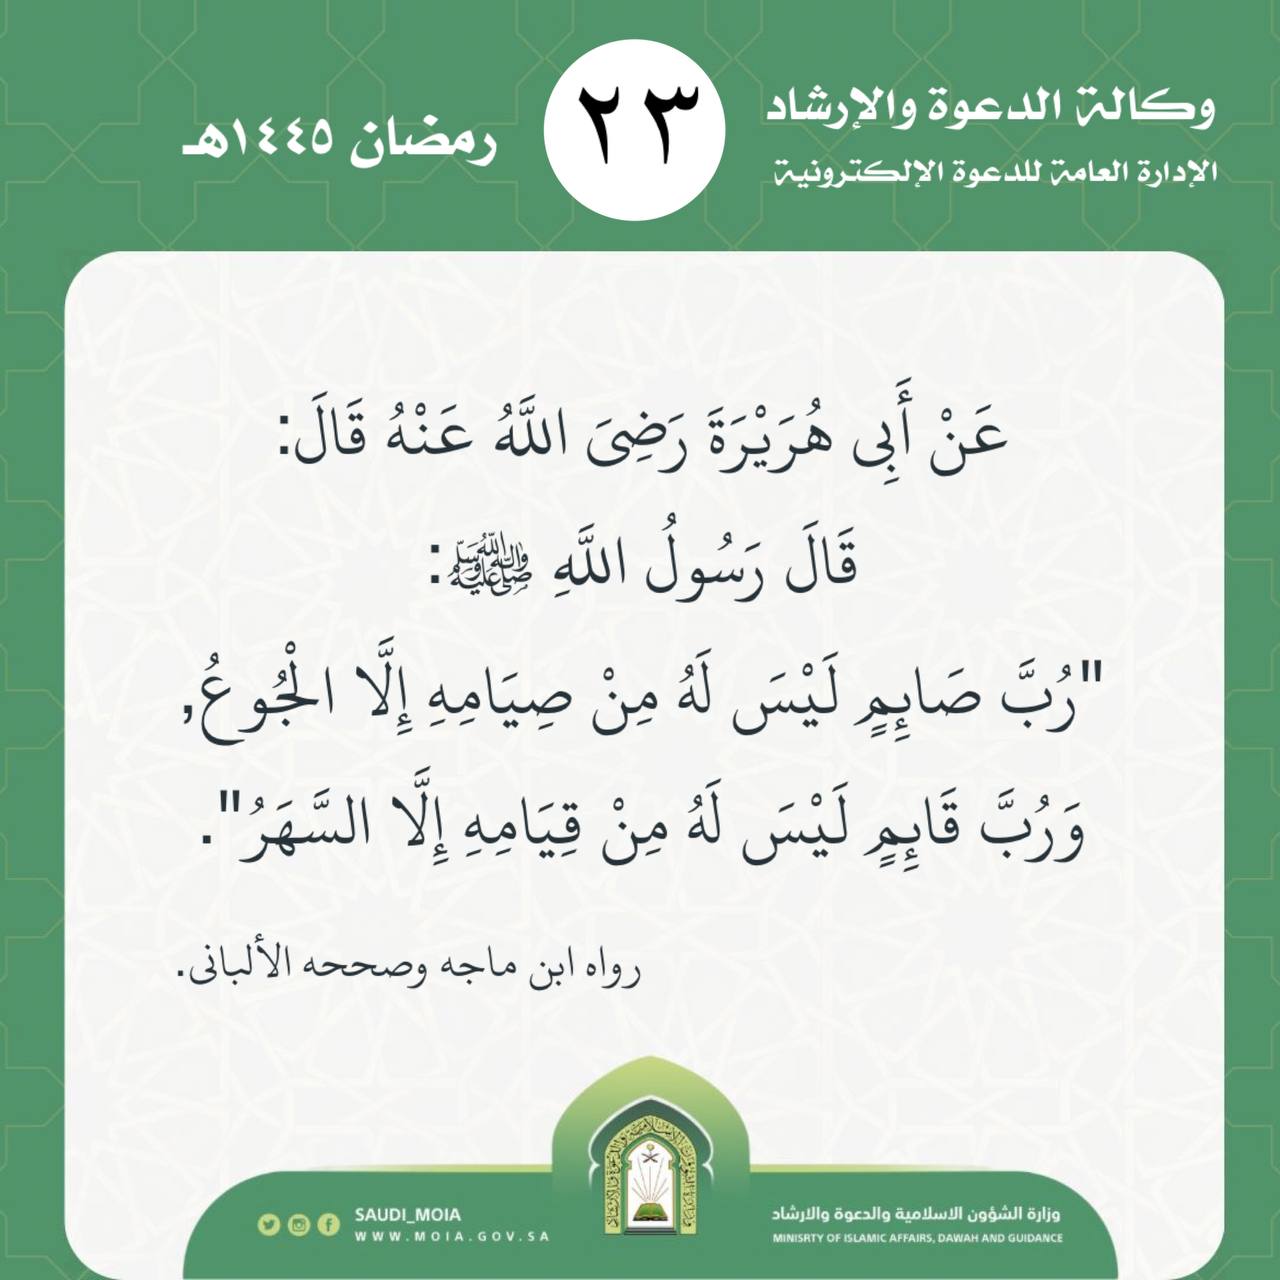 وكالة الدعوة والإرشاد
الإدارة العامة للدعوة الإلكترونية
٢٣
رمضان ١٤٤٥هـ
عَنْ أَبِي هُرَيْرَةَ رَضِيَ اللَّهُ عَنْهُ قَالَ:
قَالَ رَسُولُ اللَّهِ ﷺ:
"رُبَّ صَائِمٍ لَيْسَ لَهُ مِنْ صِيَامِهِ إِلَّا الْجُوعُ,
وَرُبَّ قَائِمٍ لَيْسَ لَهُ مِنْ قِيَامِهِ إِلَّا السَّهَرُ".
رواه ابن ماجه وصححه الألباني.
وزارة الشؤون الاسلامية والدعوة والارشاد
MINISRTY OF ISLAMIC AFFAIRS, DAWAH AND GUIDANCE
SAUDI_MOIA
WWW.MOIA.GOV.SA